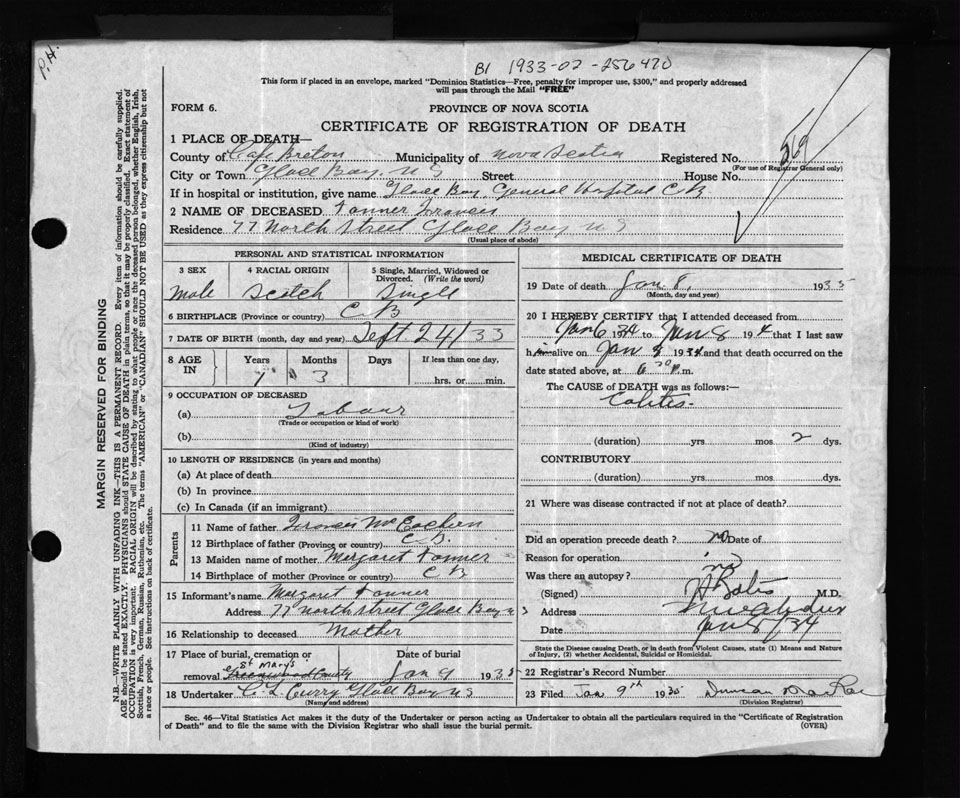 P.H.
B1 1933-02-256470
This form if placed in an envelope, marked "Dominion Statistics—Free, penalty for improper use, $300," and properly addressed
will pass through the Mail "FREE"
FORM 6.
PROVINCE OF NOVA SCOTIA
CERTIFICATE OF REGISTRATION OF DEATH
1 PLACE OF DEATH—
County of Cape Breton Municipality of Nova Scotia Registered No. 569
(For use of Registrar General only)
City or Town Glace Bay N S Street House No.
If in hospital or institution, give name Glace Bay General Hospital C B
2 NAME OF DECEASED Tanner Francis
Residence 77 North Street Glace Bay N S
(Usual place of abode)
PERSONAL AND STATISTICAL INFORMATION
3 SEX 4 RACIAL ORIGIN 5 Single, Married, Widowed or
Divorced. (Write the word)
Male Scotch Single
6 BIRTHPLACE (Province or country) C B
7 DATE OF BIRTH (month, day and year) Sept 24/33
8 AGE IN Years Months Days If less than one day,
3 hrs. or min.
9 OCCUPATION OF DECEASED
(a) Labour
(Trade or occupation or kind of work)
(b)
(Kind of industry)
10 LENGTH OF RESIDENCE (in years and months)
(a) At place of death
(b) In province
(c) In Canada (if an immigrant)
Parents
11 Name of father Francis McEachern
12 Birthplace of father (Province or country) C B.
13 Maiden name of mother Margaret Tanner
14 Birthplace of mother (Province or country) C B
15 Informant's name Margaret Tanner
Address 77 North Street Glace Bay N S
16 Relationship to deceased Mother
17 Place of burial, cremation or Date of burial
St Mary's
removal Jan 9 1935
18 Undertaker C. L Curry Glace Bay N S
(Name and address)
MEDICAL CERTIFICATE OF DEATH
19 Date of death Jan 8, 193
(Month, day and year)
20 I HEREBY CERTIFY that I attended deceased from
Jan 6 34 to Jan 8 1934 that I last saw
him alive on Jan 8 1934 and that death occurred on the
date stated above, at 6 30 P.m.
The CAUSE OF DEATH was as follows:—
Colitis
(duration) yrs mos 2 dys.
CONTRIBUTORY
(duration) yrs mos dys.
21 Where was disease contracted if not at place of death?
Did an operation precede death? no Date of
Reason for operation
Was there an autopsy? no
(Signed) M.D.
Address
Date Jan 8/34
State the Disease causing Death, or in death from Violent Causes, state (1) Means and Nature
of Injury, (2) whether Accidental, Suicidal or Homicidal.
22 Registrar's Record Number
23 Filed Jan 9th 1935 Duncan MacRae
(Division Registrar)
Sec. 46—Vital Statistics Act makes it the duty of the Undertaker or person acting as Undertaker to obtain all the particulars required in the "Certificate of Registration
of Death" and to file the same with the Division Registrar who shall issue the burial permit. (OVER)
MARGIN RESERVED FOR BINDING
N.B.—WRITE PLAINLY WITH UNFADING INK—THIS IS A PERMANENT RECORD. Every item of information should be carefully supplied.
AGE should be stated EXACTLY. PHYSICIANS should STATE CAUSE OF DEATH in plain terms, so that it may be properly classified. Exact statement of
OCCUPATION is very important. RACIAL ORIGIN will be described by stating to what people or race the deceased person belonged, whether English, Irish,
Scottish, French, German, Russian, Ruthenian, etc. The terms "AMERICAN" or "CANADIAN" SHOULD NOT BE USED as they express citizenship but not
a race or people. See instructions on back of certificate.